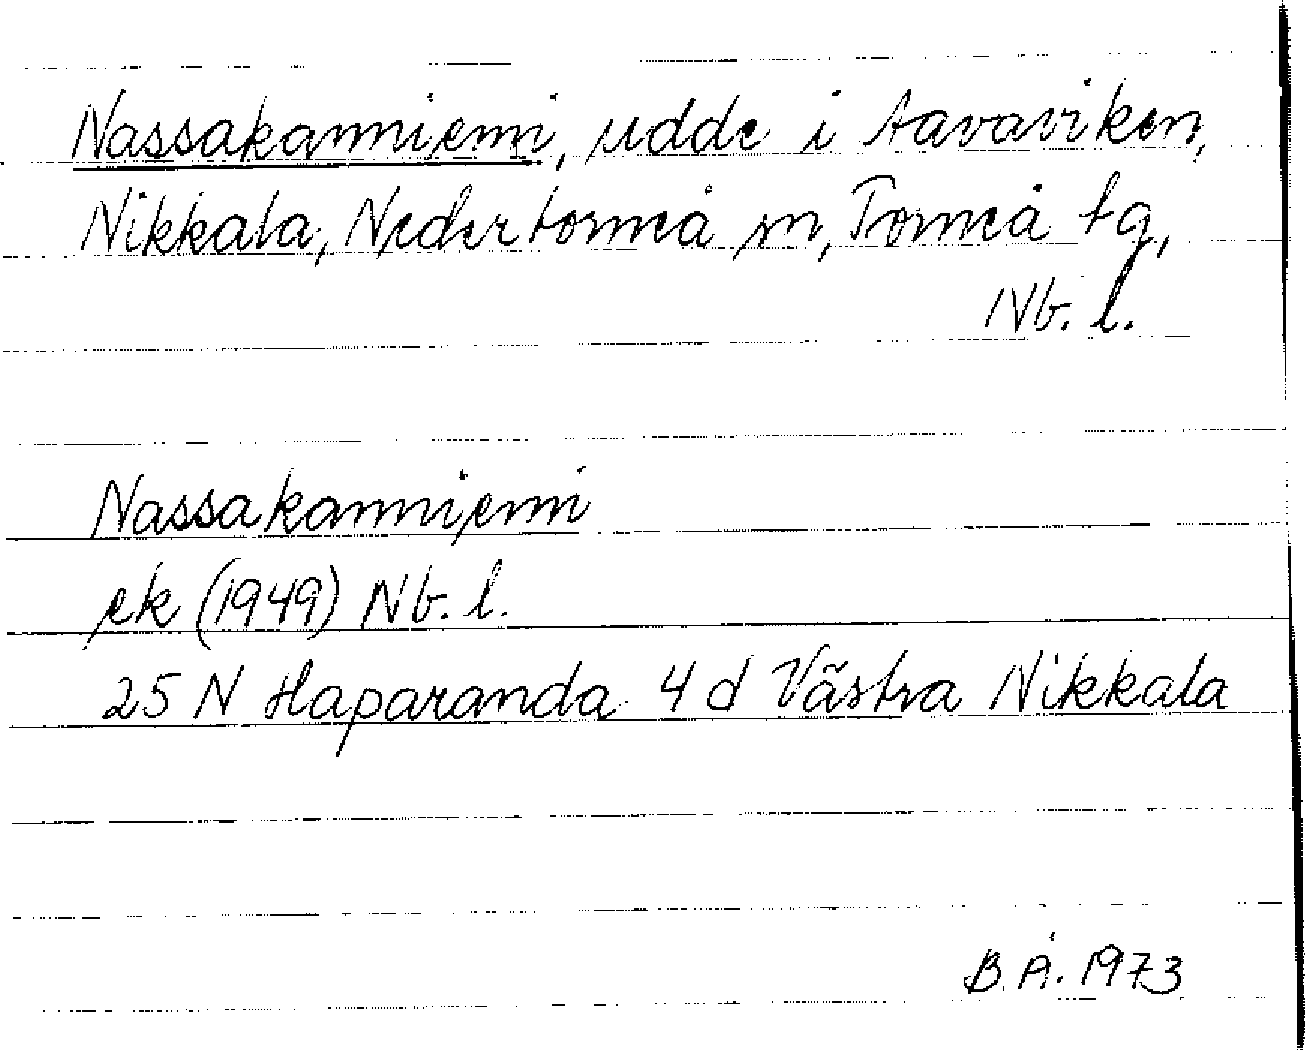 Nassakanniemi, udde i Aavaviken,
Nikkala, Nedertorneå sn, Torneå tg,
Nb. l.
Nassakanniemi
ek (1949) Nb. l.
25 N Haparanda 4 d Västra Nikkala
B.Å. 1973